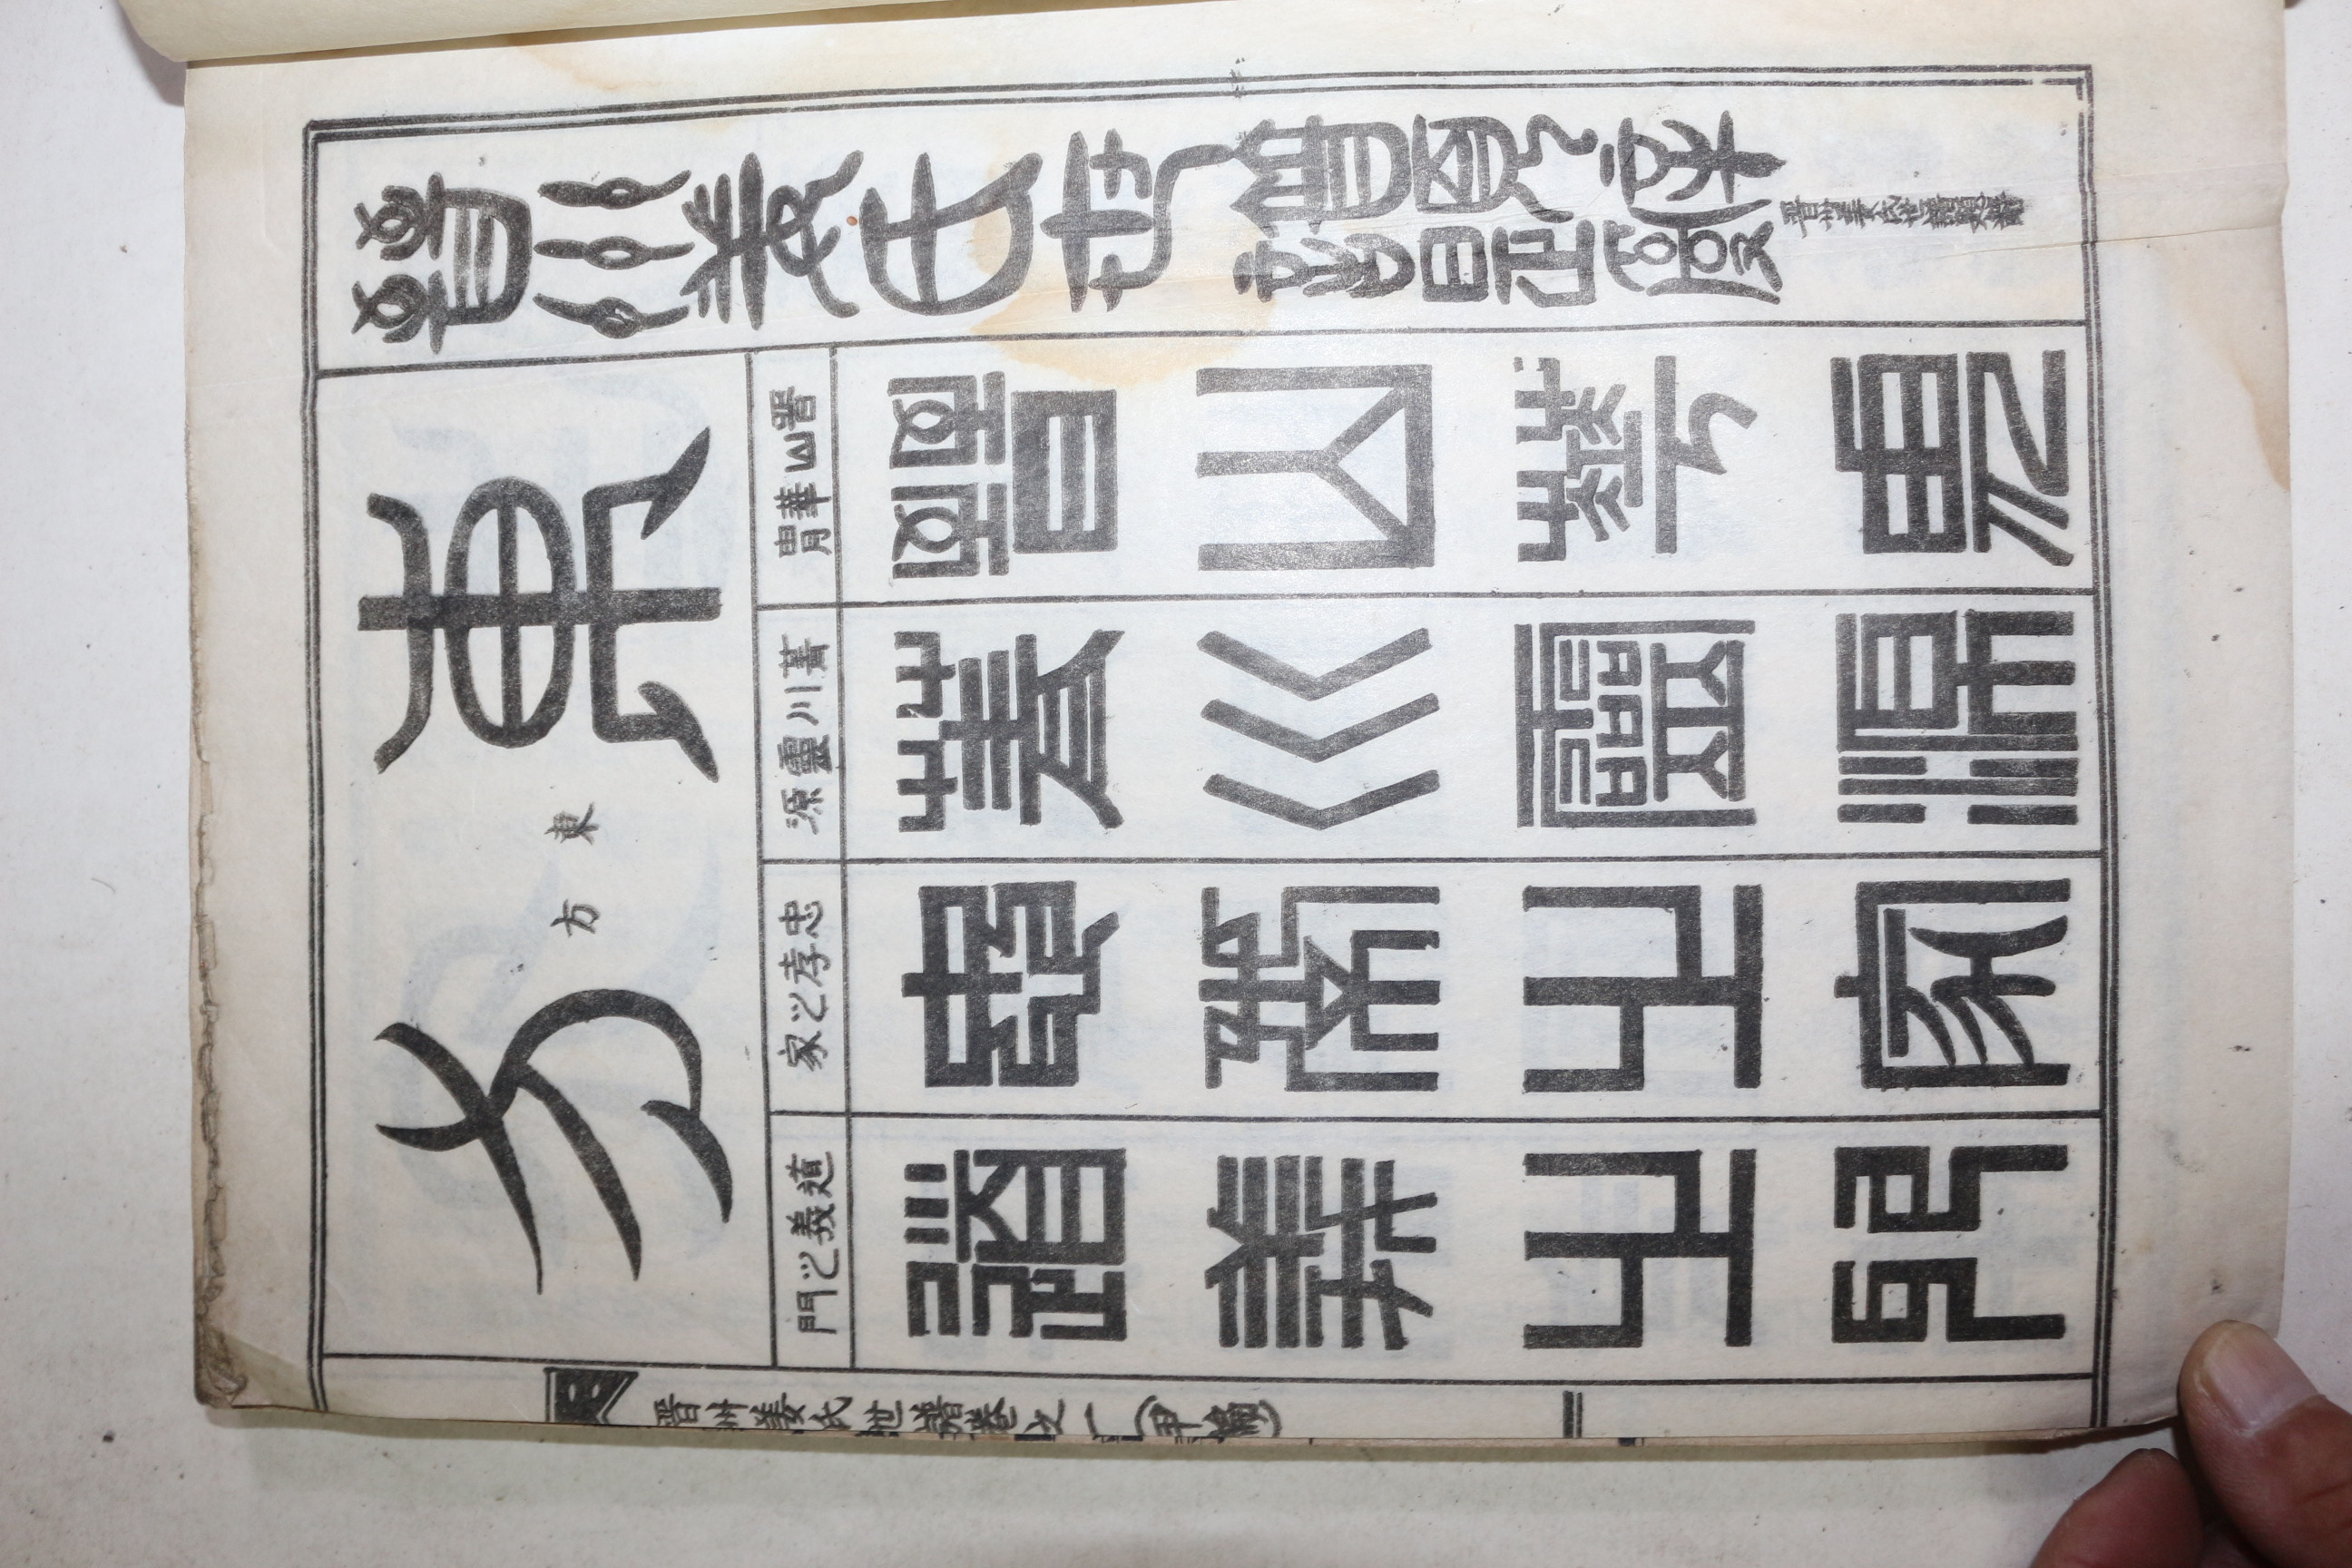 晋州姜氏世譜題辭
晋州姜氏世譜題辭
東方
東方
晋山華冑
晋山華冑
菁川靈源
菁川靈源
忠孝之家
忠孝之家
道義之門
道義之門
晋州姜氏世譜卷之一(甲編)